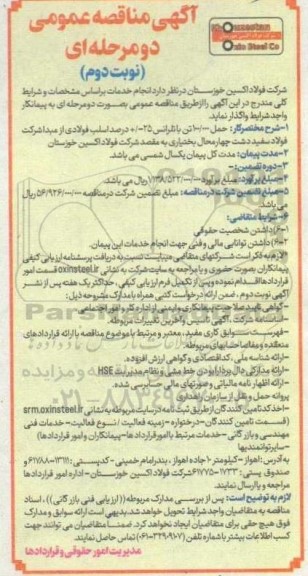 آگهی مناقصه عمومی
دو مرحله ای
(نوبت دوم)
Khouzestan
Oxin Steel Co
شرکت فولاد اکسین خوزستان در نظر دارد انجام خدمات براساس مشخصات و شرایط
کلی مندرج در این آگهی را از طریق مناقصه عمومی بصورت دو مرحله ای به پیمانکار
واجد شرایط واگذار نماید.
۱-شرح مختصر کار: حمل ۱۰۰/۰۰۰ تن با تلرانس ۲۵-/+ درصد اسلب فولادی از مبدا شرکت
فولاد سفید دشت چهارمحال بختیاری به مقصد شرکت فولاد اکسین خوزستان
۲-مدت پیمان: مدت کل پیمان یکسال شمسی می باشد.
۳-دوره تضمین: -
۴-مبلغ برآورد: مبلغ برآورد ریال می باشد.
۵-مبلغ تضمین شرکت در مناقصه: مبلغ تضمین شرکت در مناقصه ریال
می باشد.
۶-شرایط متقاضی:
۶-۱) داشتن شخصیت حقوقی
۶-۲) داشتن توانایی مالی و فنی جهت انجام خدمات این پیمان.
لازم به ذکر است شرکتهای متقاضی میبایست نسبت به دریافت پرسشنامه ارزیابی کیفی
پیمانکاران بصورت حضوری و یا مراجعه به سایت شرکت به نشانی oxinsteel.ir قسمت امور
قراردادها اقدام نموده و پس از تکمیل فرم ارزیابی کیفی، حداکثر یک هفته پس از نشر
آگهی نوبت دوم، ضمن ارائه درخواست کتبی همراه با مدارک مشروحه ذیل:
-فهرست سوابق کاری مفید، معتبر و مرتبط با موضوع مناقصه با ارائه قراردادهای
منعقده و مفاصا حسابهای مربوطه.
-ارائه شناسه ملی، کد اقتصادی و گواهی ارزش افزوده.
-ارائه مدارکی دال بر دارا بودن خط مشی و نظام مدیریت HSE
-ارائه اظهار نامه مالیاتی و صورتهای مالی حسابرسی شده.
پروانه حمل و نقل از سازمان راهداری
-اخذ کد تامین کنندگان از طریق ثبت نامه در سایت مربوطه به نشانی srm.oxinsteel.ir
(قسمت تامین کنندگان - درختواره - زمینه فعالیت / نوع فعالیت - خدمات فنی
مهندسی و بازرگانی - خدمات مرتبط با امور قراردادها - پیمانکاران و امور قراردادها)
-سایر توانمندیها
به آدرس: اهواز - کیلومتر ۱۰ جاده اهواز - بندر امام خمینی - کدپستی: ۱۳۱۱۱-۶۱۷۸۸ و
صندوق پستی: ۱۷۳۳-۶۱۷۷۵ شرکت فولاد اکسین خوزستان - اداره امور قراردادها
مراجعه و یا ارسال نمایند.
لازم به توضیح است: پس از بررسی مدارک مربوطه ((ارزیابی فنی بازرگانی))، اسناد
مناقصه به متقاضیان واجد شرایط تحویل خواهد شد. بدیهی است ارائه سوابق و مدارک
فوق هیچ حقی برای متقاضیان ایجاد نخواهد کرد. ضمنا متقاضیان می توانند جهت
کسب اطلاعات بیشتر با شماره تلفن (۹۱۰۷-۳۲۹-۰۶۱) تماس حاصل نمایند.
مدیریت امور حقوقی و قراردادها